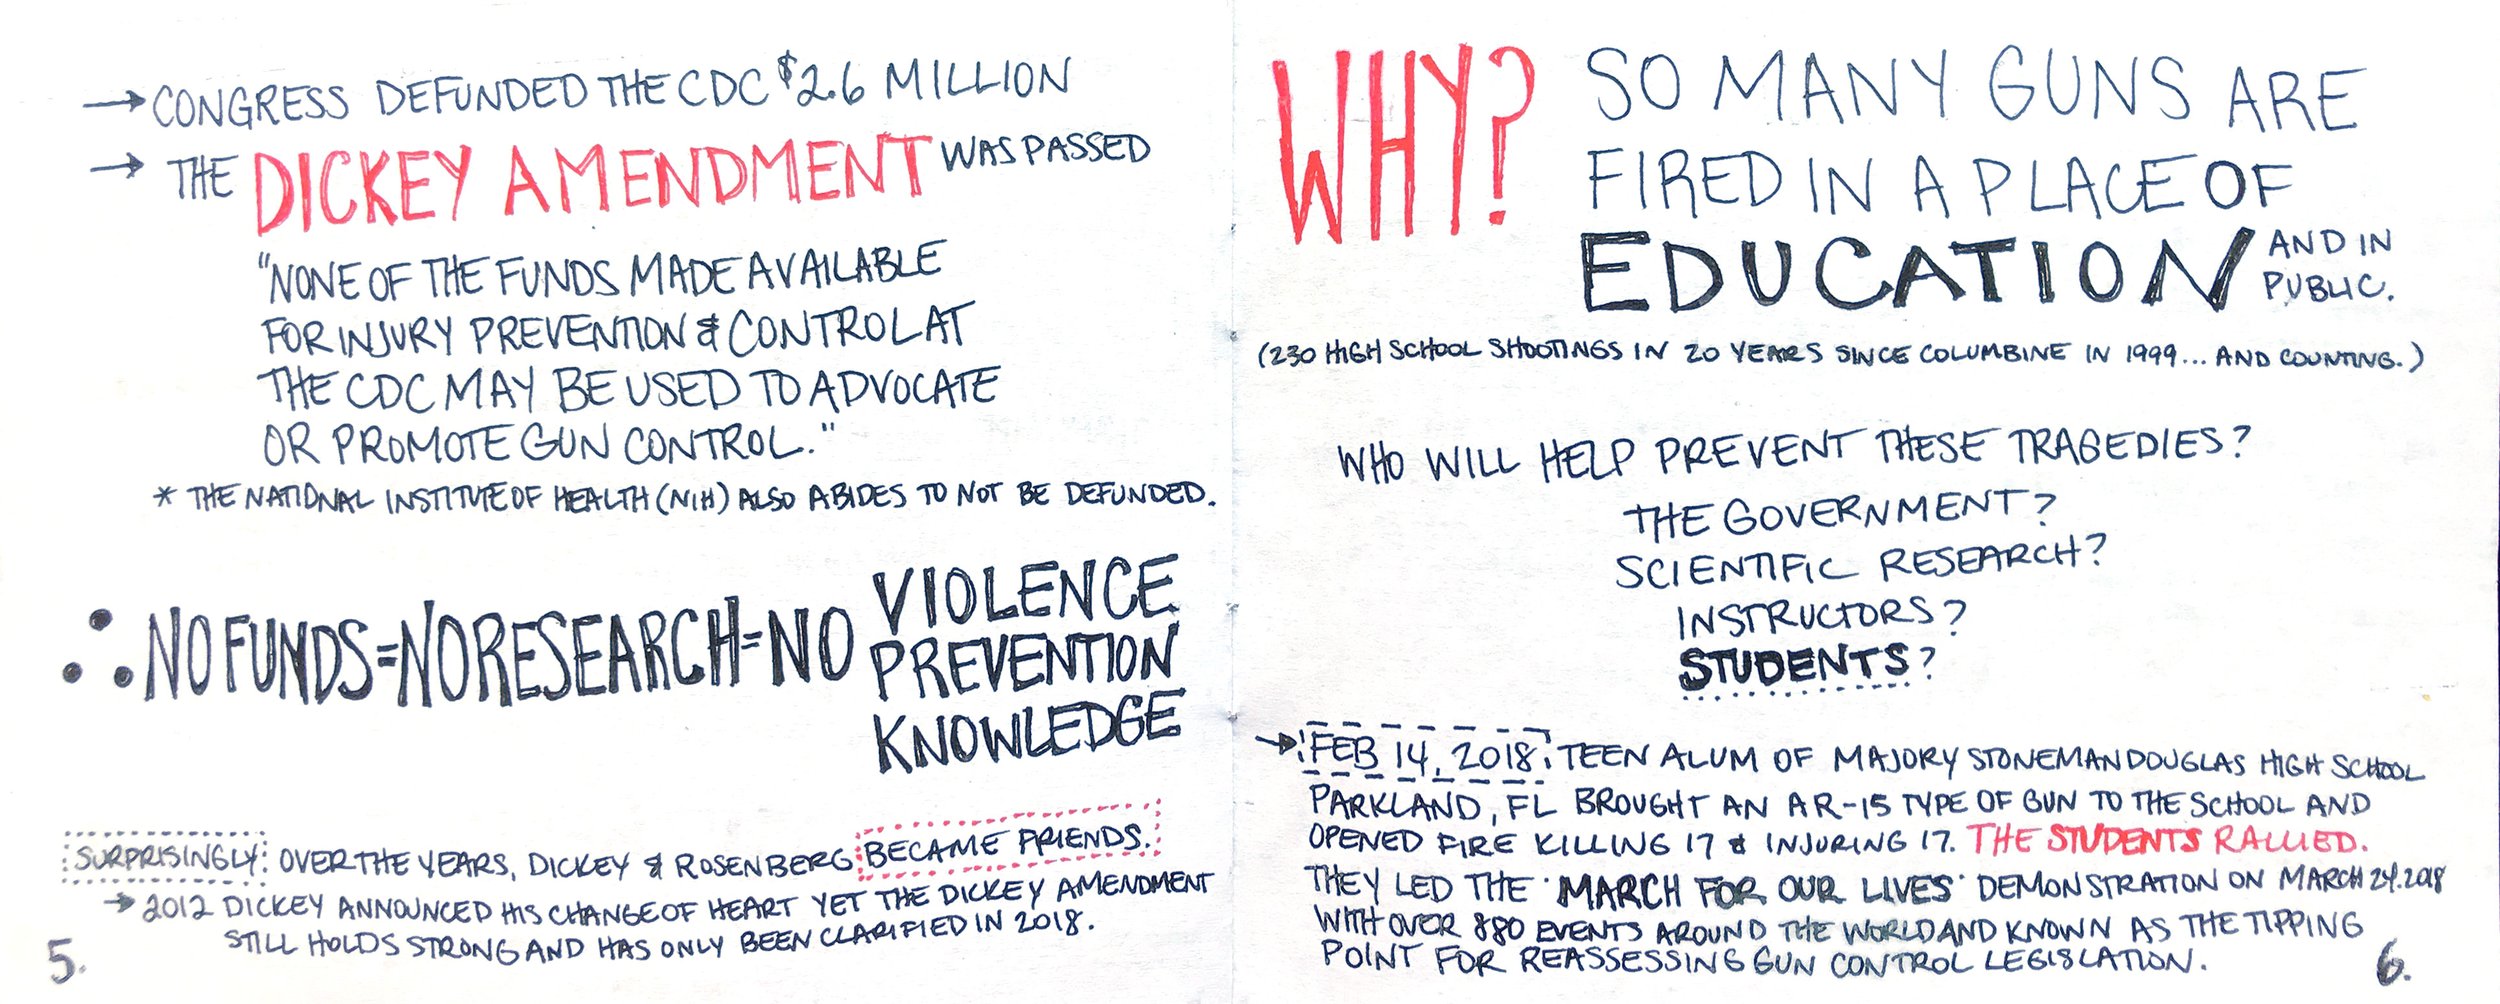 → CONGRESS DEFUNDED THE CDC $2.6 MILLION
→ THE DICKEY AMENDMENT WAS PASSED
"NONE OF THE FUNDS MADE AVAILABLE
FOR INJURY PREVENTION & CONTROL AT
THE CDC MAY BE USED TO ADVOCATE
OR PROMOTE GUN CONTROL."
* THE NATIONAL INSTITUTE OF HEALTH (NIH) ALSO ABIDES TO NOT BE DEFUNDED.
∴ NO FUNDS = NO RESEARCH = NO VIOLENCE
PREVENTION
KNOWLEDGE
SURPRISINGLY OVER THE YEARS, DICKEY & ROSENBERG BECAME FRIENDS.
→ 2012 DICKEY ANNOUNCED HIS CHANGE OF HEART YET THE DICKEY AMENDMENT
STILL HOLDS STRONG AND HAS ONLY BEEN CLARIFIED IN 2018.
5.
WHY? SO MANY GUNS ARE
FIRED IN A PLACE OF
EDUCATION AND IN
PUBLIC.
(230 HIGH SCHOOL SHOOTINGS IN 20 YEARS SINCE COLUMBINE IN 1999... AND COUNTING.)
WHO WILL HELP PREVENT THESE TRAGEDIES?
THE GOVERNMENT?
SCIENTIFIC RESEARCH?
INSTRUCTORS?
STUDENTS?
→ FEB 14, 2018: TEEN ALUM OF MAJORY STONEMAN DOUGLAS HIGH SCHOOL
PARKLAND, FL BROUGHT AN AR-15 TYPE OF GUN TO THE SCHOOL AND
OPENED FIRE KILLING 17 & INJURING 17. THE STUDENTS RALLIED.
THEY LED THE 'MARCH FOR OUR LIVES' DEMONSTRATION ON MARCH 24.2018
WITH OVER 880 EVENTS AROUND THE WORLD AND KNOWN AS THE TIPPING
POINT FOR REASSESSING GUN CONTROL LEGISLATION.
6.